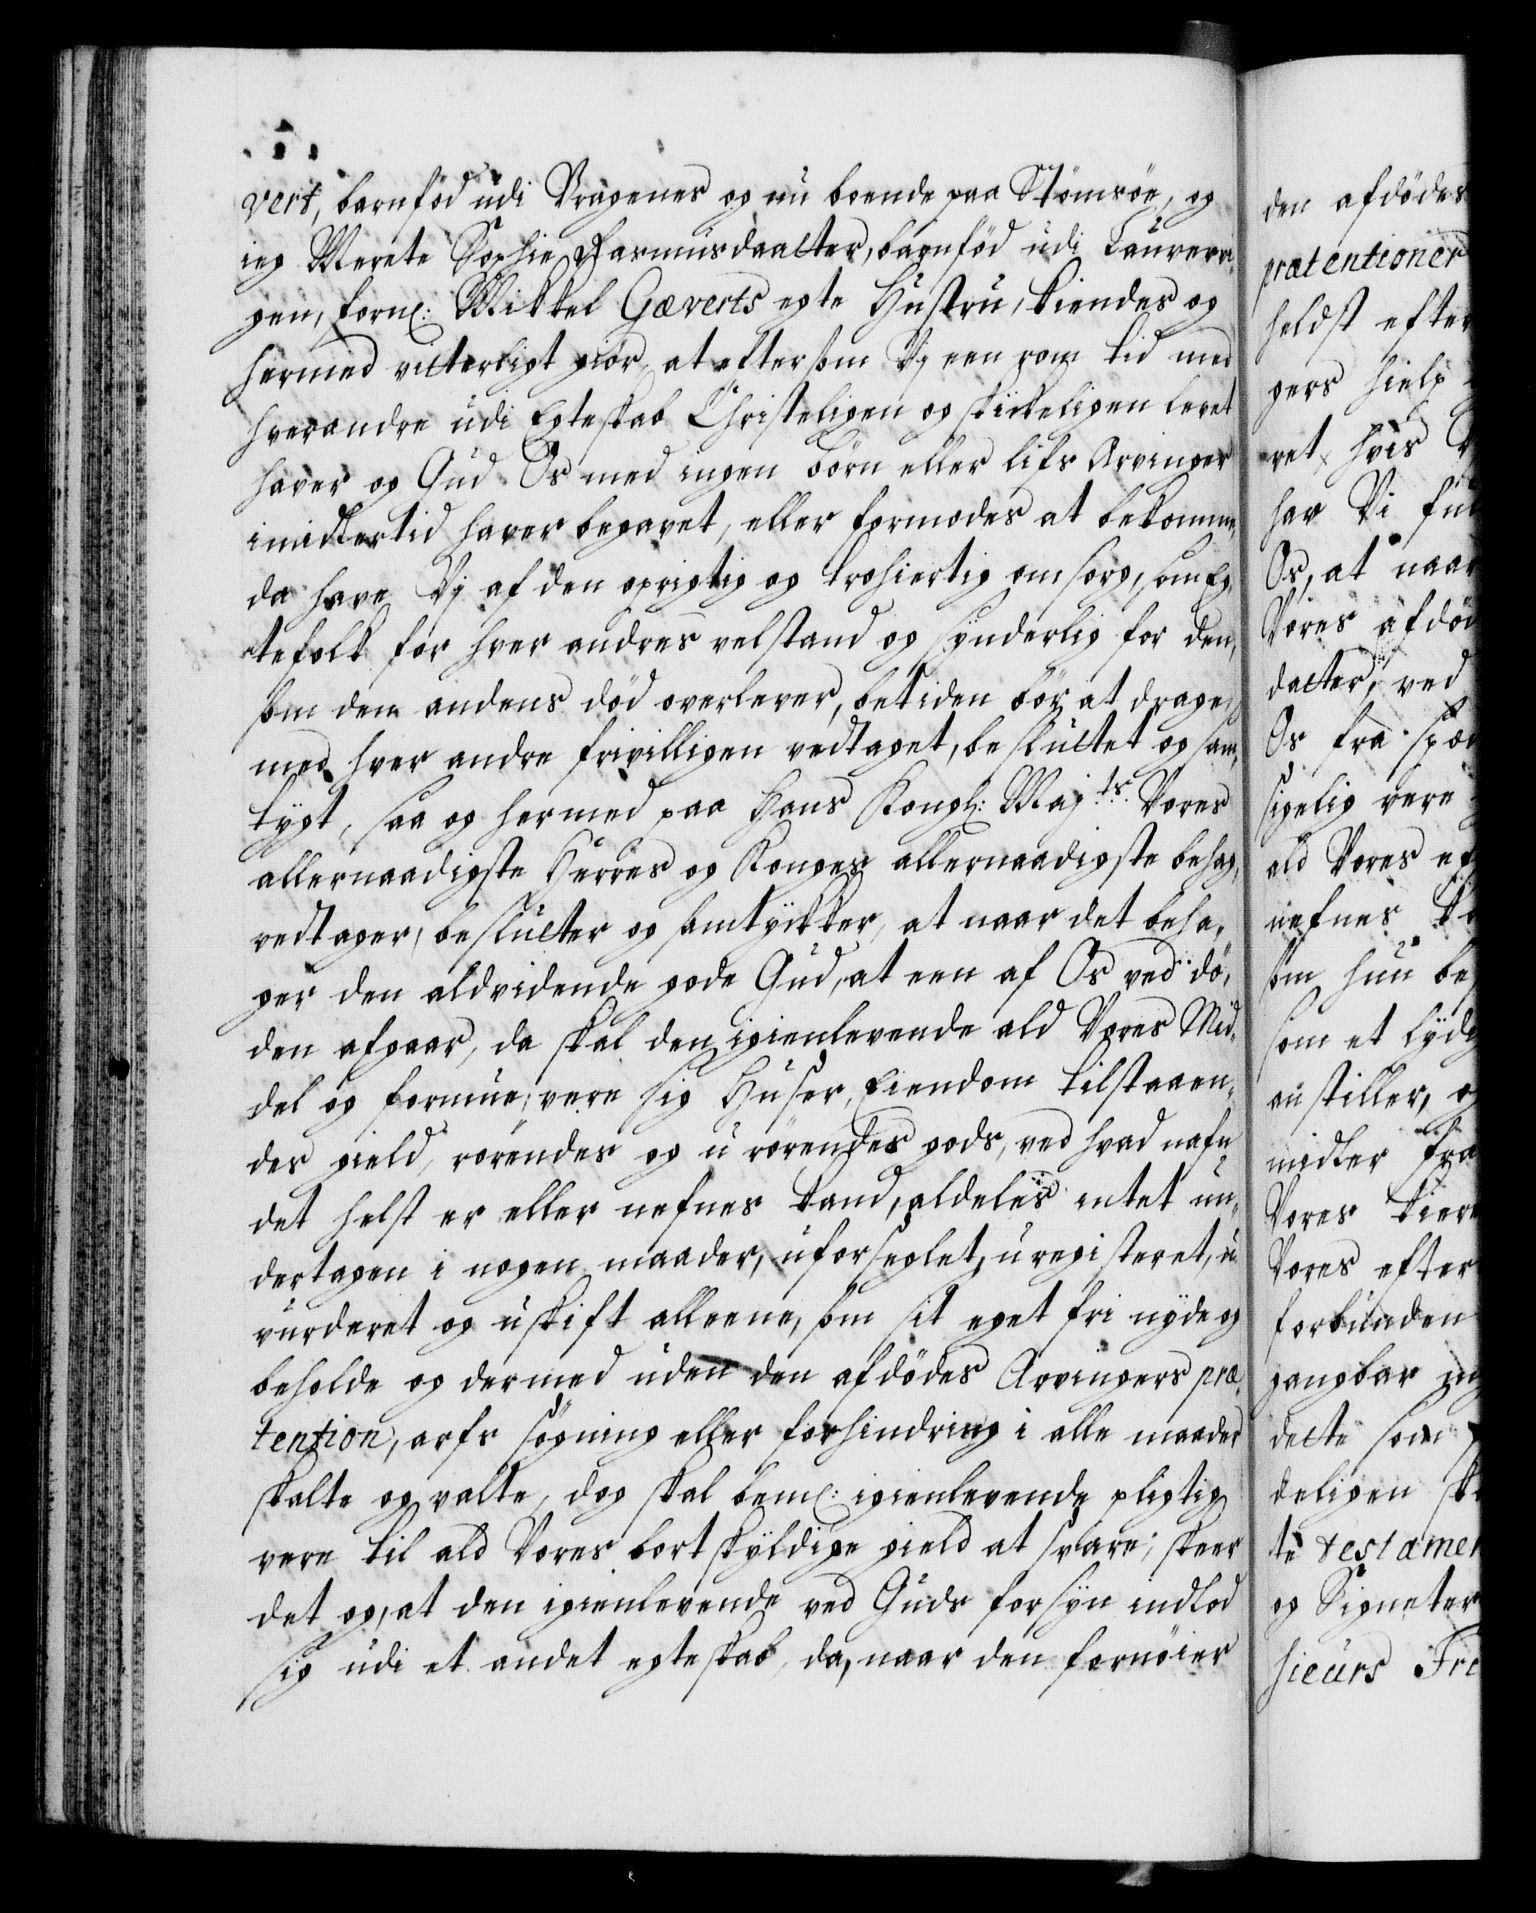 vert, barnfød udi Bragenes og nu boende paa Strømsøe, og
ieg Merete Sophie Rasmusdaatter, barnfød udi Laurvi¬
gen, forn: Mikkel Gæverts egte Hustru, kiendes og
hermed vitterligt giør, at eftersom Vj een rom tid med
hverandre udi Egteskab Christeligen og skikkeligen levet
haver og Gud Os med ingen börn eller lifs Arvinger
imidlertid haver begavet, eller formodes at bekomme,
da have Vj af den oprigtig og trohiertig omsorg, som Eg¬
tefolk for hver andres velstand og synderlig for den,
som den andens död overlever, betiden bör at drage,
med hver andre frivilligen vedtaget, besluttet og sam¬
tygt, saa og hermed paa Hans Kongl: Maj:ts Vores
allernaadigste Herres og Konges allernaadigste behag,
vedtager, beslutter og samtykker, at naar det beha¬
ger den aldvidende gode Gud, at een af Os ved dö¬
den afgaar, da skal den igienlevende ald Vores Mid¬
del og formue, være sig Huser, Eiendom tilstaaen¬
des gield, rörendes og u rörendes gods, ved hvad nafn
det helst er eller nefnes kand, aldeles intet un¬
dertagen i nogen maader, uforseglet, u registeret, u
vurderet og uskift alleene, som sit eget fri nyde og
beholde og dermed uden den afdödes Arvingers præ¬
tention, arfs sögning eller forhindring i alle maader
skalte og valte, dog skal bem: igienlevende pligtig
vere til ald Vores bortskyldige gield at svare; skeer
det og, at den igienlevende ved Guds forsyn indlod
sig udi et andet egteskab, da, naar den fornöier
den afdödes
prætentioner
heldst efter
gers hielp
ret, hvis
har Vi
Os, at naar
Vores afdöd
datter, ved
Os fra
sigelig vere
ald Vores
nefnes
som hun
som et
anstiller,
midler fra
Vores kiere
Vores efter
forbunden
gangbar
dette som
deligen
te testamen
og Signeter
sieurs Fre